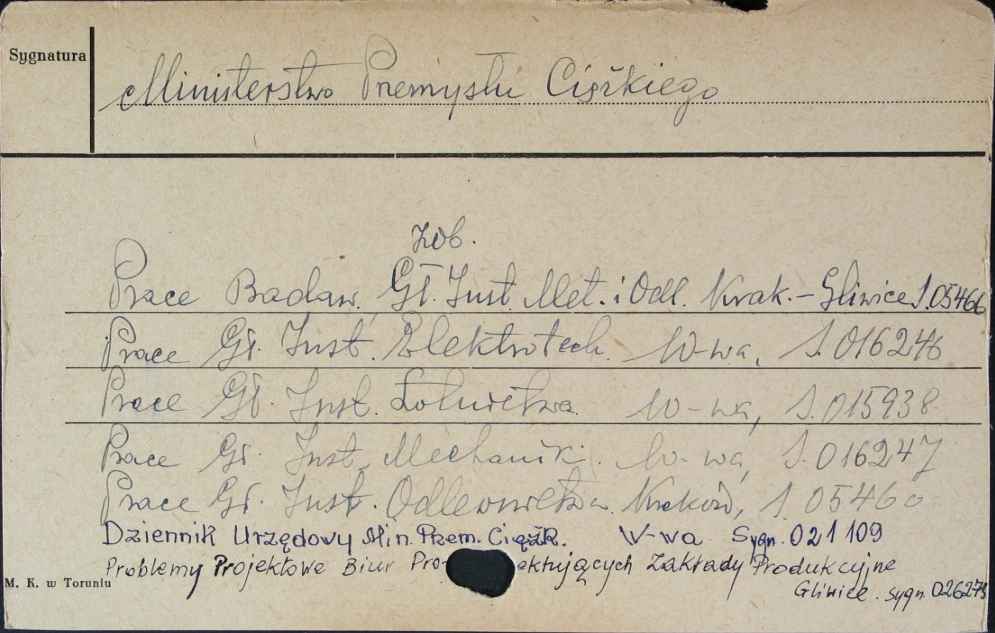 Sygnatura
Ministerstwo Przemysłu Ciężkiego
zob.
Prace Badaw. Gł. Inst. Met. i Odl. Krak. - Gliwice S.05466
Prace Gł. Inst. Elektrotech. W-wa, S.016246
Prace Gł. Inst. Lotnictwa W-wa, S.015938
Prace Gł. Inst. Mechanik. W-wa, S.016247
Prace Gł. Inst. Odlewnictwa Kraków, S.05460
Dziennik Urzędowy Min. Przem. Ciężk. W-wa Sygn. 021109
Problemy Projektowe Biur Pro ektujących Zakłady Produkcyjne
Gliwice. sygn. 026273
M. K. w Toruniu